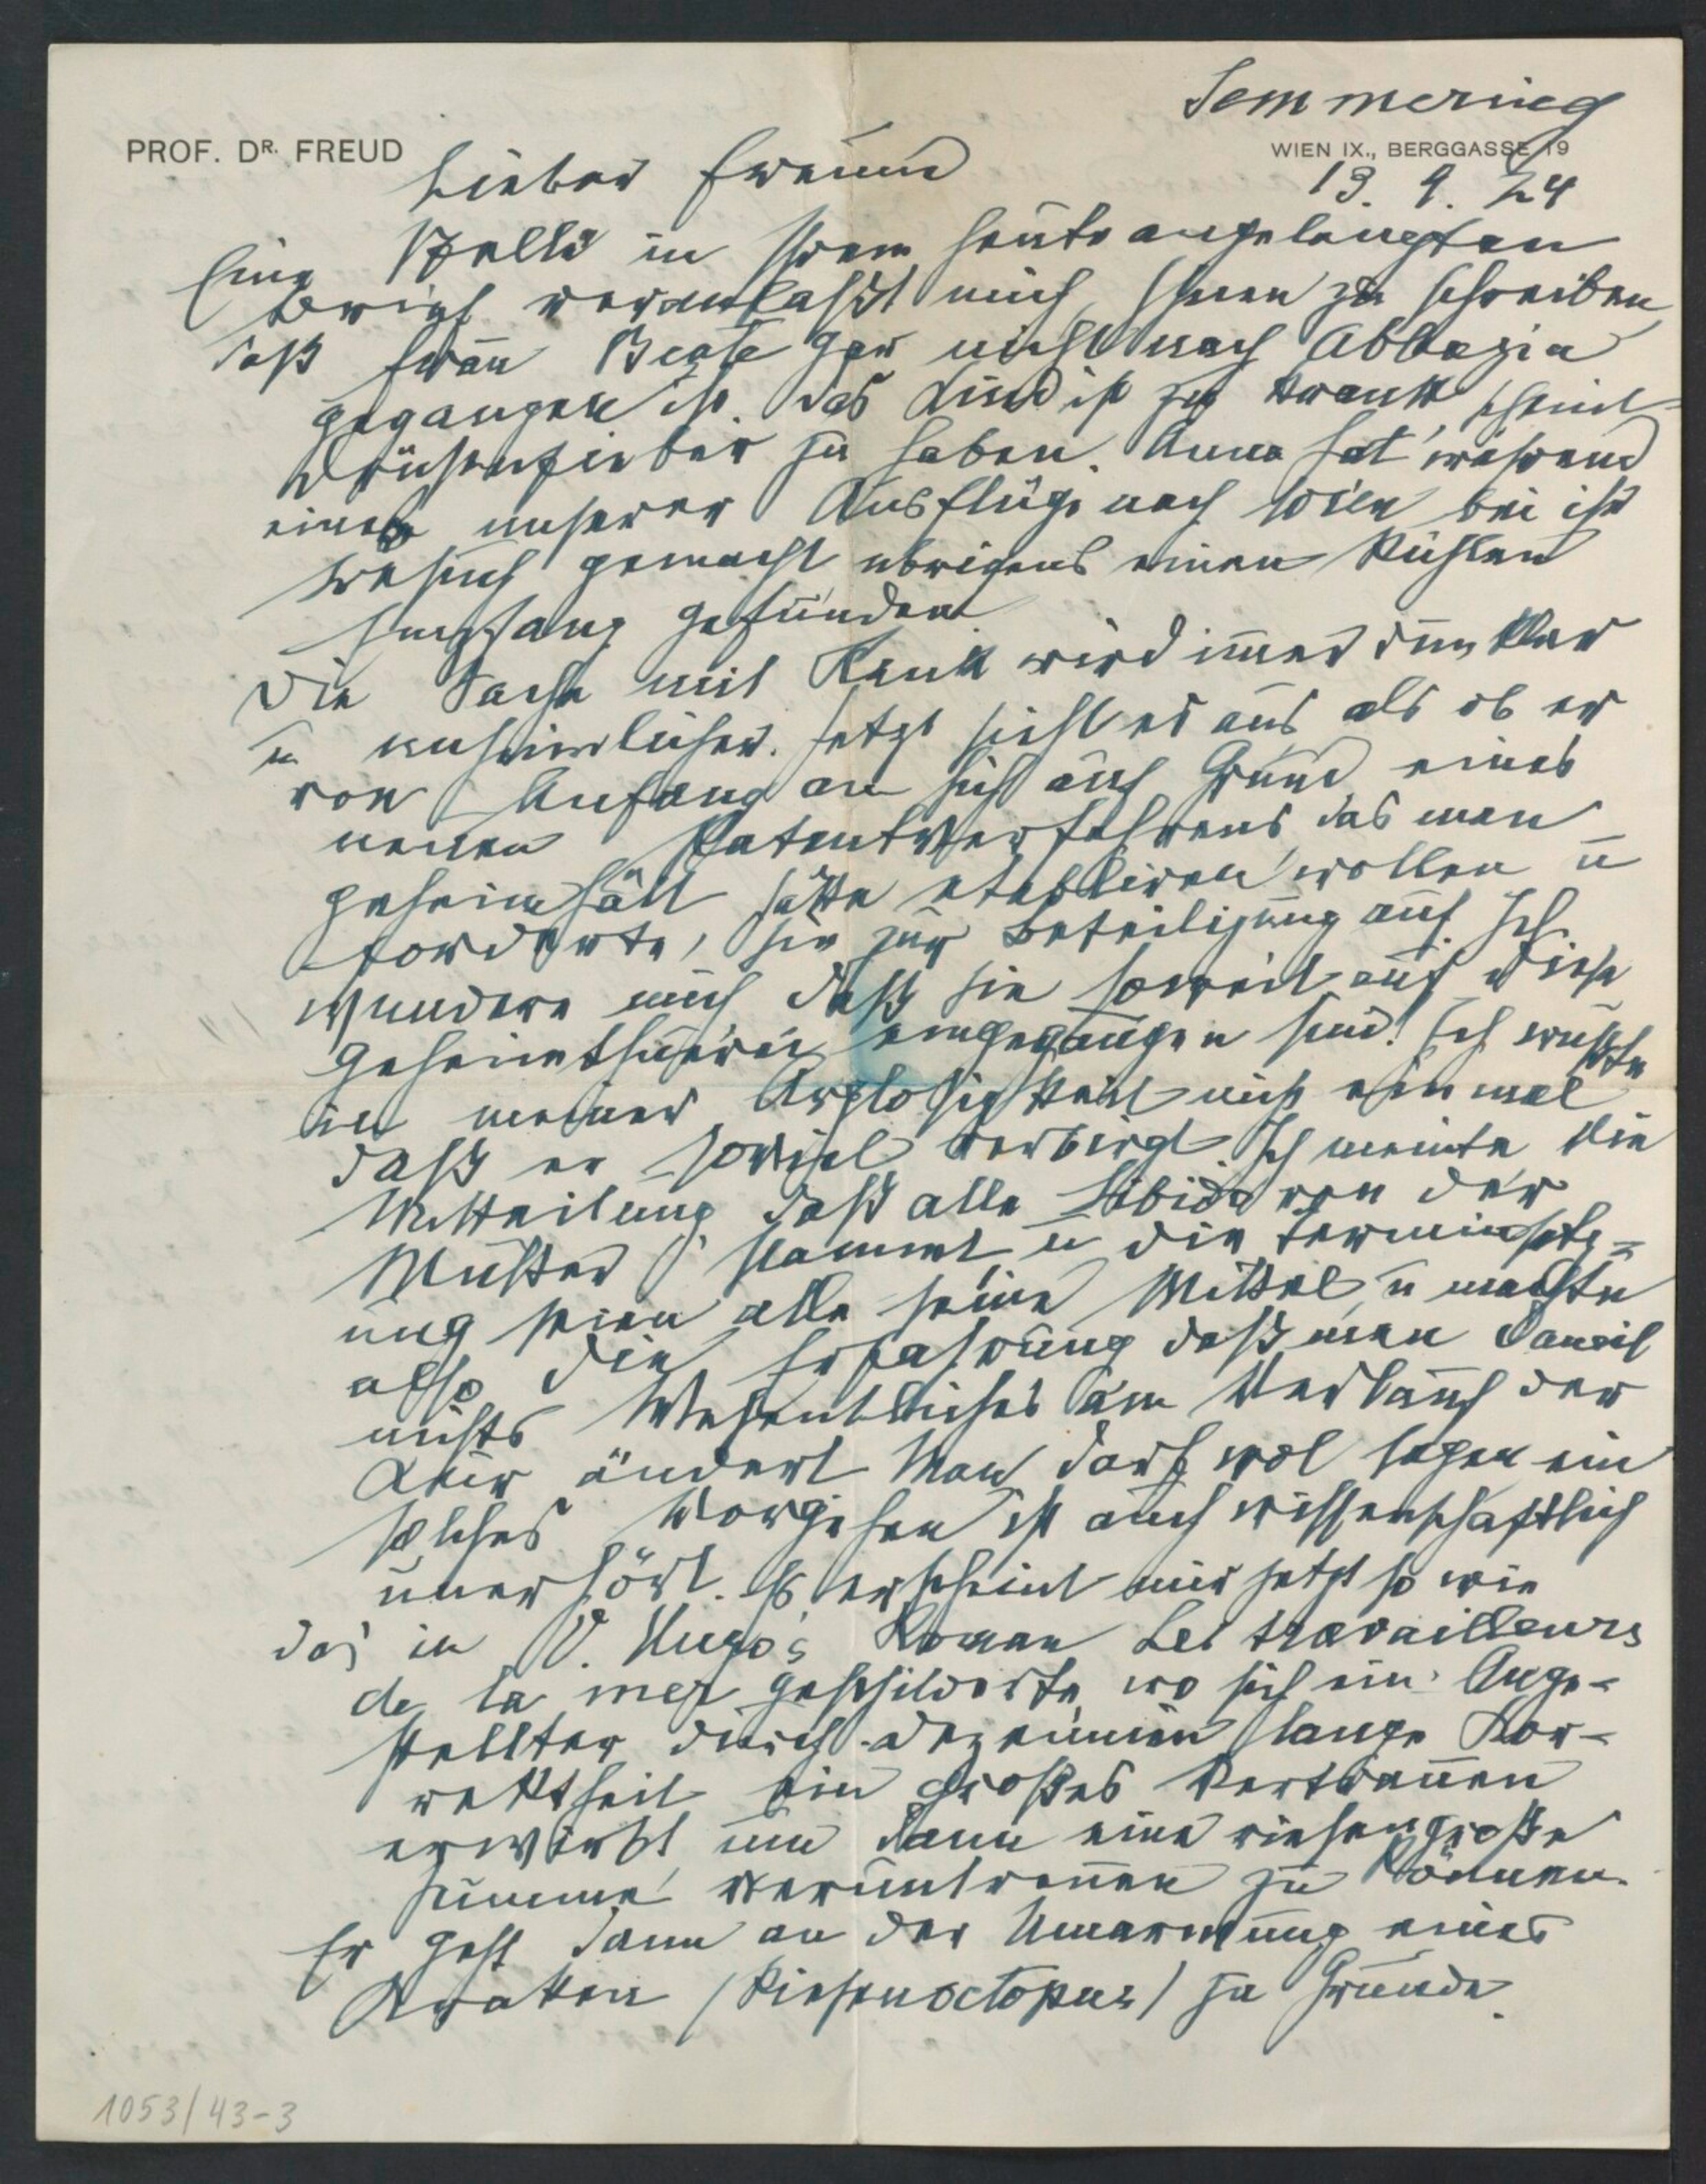 Semmering
PROF. DR. FREUD
WIEN IX., BERGGASSE 19
13. 9. 24
Lieber Freund
Eine Stelle in Ihrem heute angelangten
Brief veranlaßt mich, Ihnen zu schreiben
daß Frau Beate gar nicht nach Abbazia
gegangen ist. Das Kind ist zu krank, scheint
Drüsenfieber zu haben. Anna hat während
eines unserer Ausflüge nach Wien bei ihr
Besuch gemacht übrigens einen kühlen
Empfang gefunden
Die Sache mit Rank wird immer dunkler
u unheimlicher. Jetzt sieht es aus als ob er
von Anfang an sich auf Grund eines
neuen Patentverfahrens, das man
geheim hält hätte etabliren wollen u
forderte, sie zur Beteiligung auf. Ich
wundere mich daß sie soweit auf diese
Geheimthuerei eingegangen sind! Ich wußte
in meiner Arglosigkeit nicht einmal
daß er soviel verbirgt. Ich meinte die
Mitteilung daß alle Libido von der
Mutter stammt u die Terminsetz-
ung seien alle seine Mittel u machte
also die Erfahrung daß man damit
nichts Wesentliches am Verlauf der
Kur ändert. Man darf wol sagen ein
solches Vorgehen ist auch wissenschaftlich
unerhört. Es erscheint mir jetzt so wie
das in V. Hugo's Roman Les travailleurs
de la mer geschilderte, wo sich ein Ange-
stellter durch dezennien lange Kor-
rektheit ein großes Vertrauen
erwirbt um dann eine riesengroße
Summe veruntreuen zu können.
Er geht dann an der Umarmung eines
Kraken (Riesenoctopus) zu Grunde.
1053/43-3